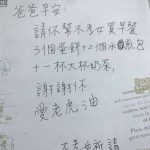 爸爸早安:
請你幫不孝女買早餐
3個蛋餅+2個水煎包
+一杯大杯奶茶,
謝謝你
愛老虎油
不孝女新請